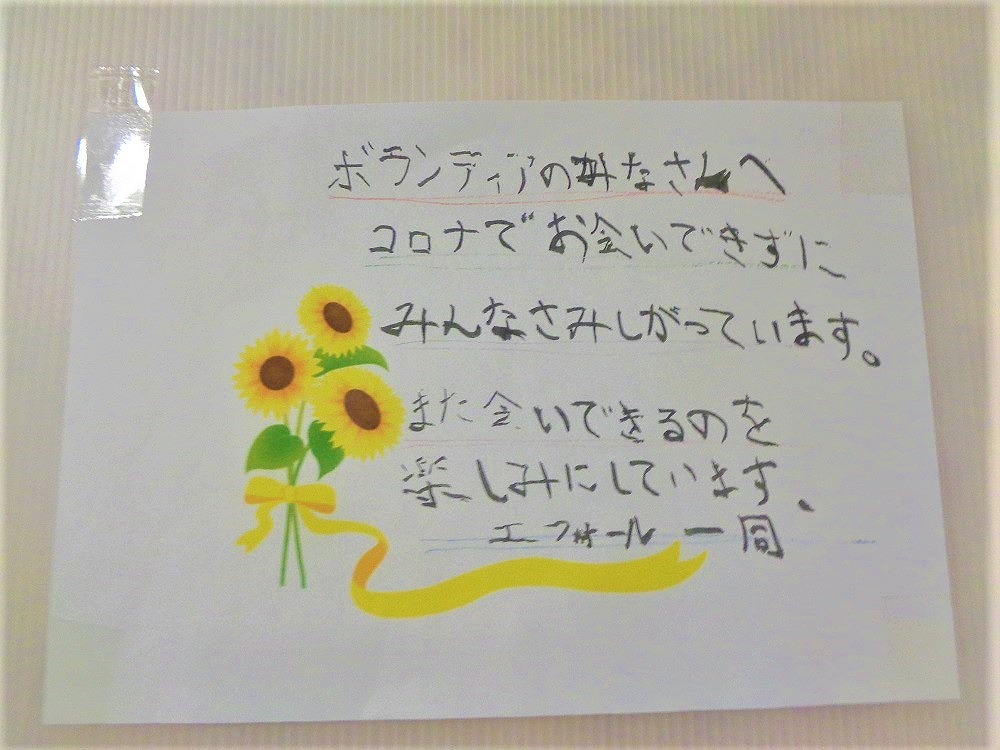 ボランディアの皆なさんへ
コロナでお会いできずに
みんなさみしがっています。
また会いできるのを
楽しみにしています。
エフォール 一同